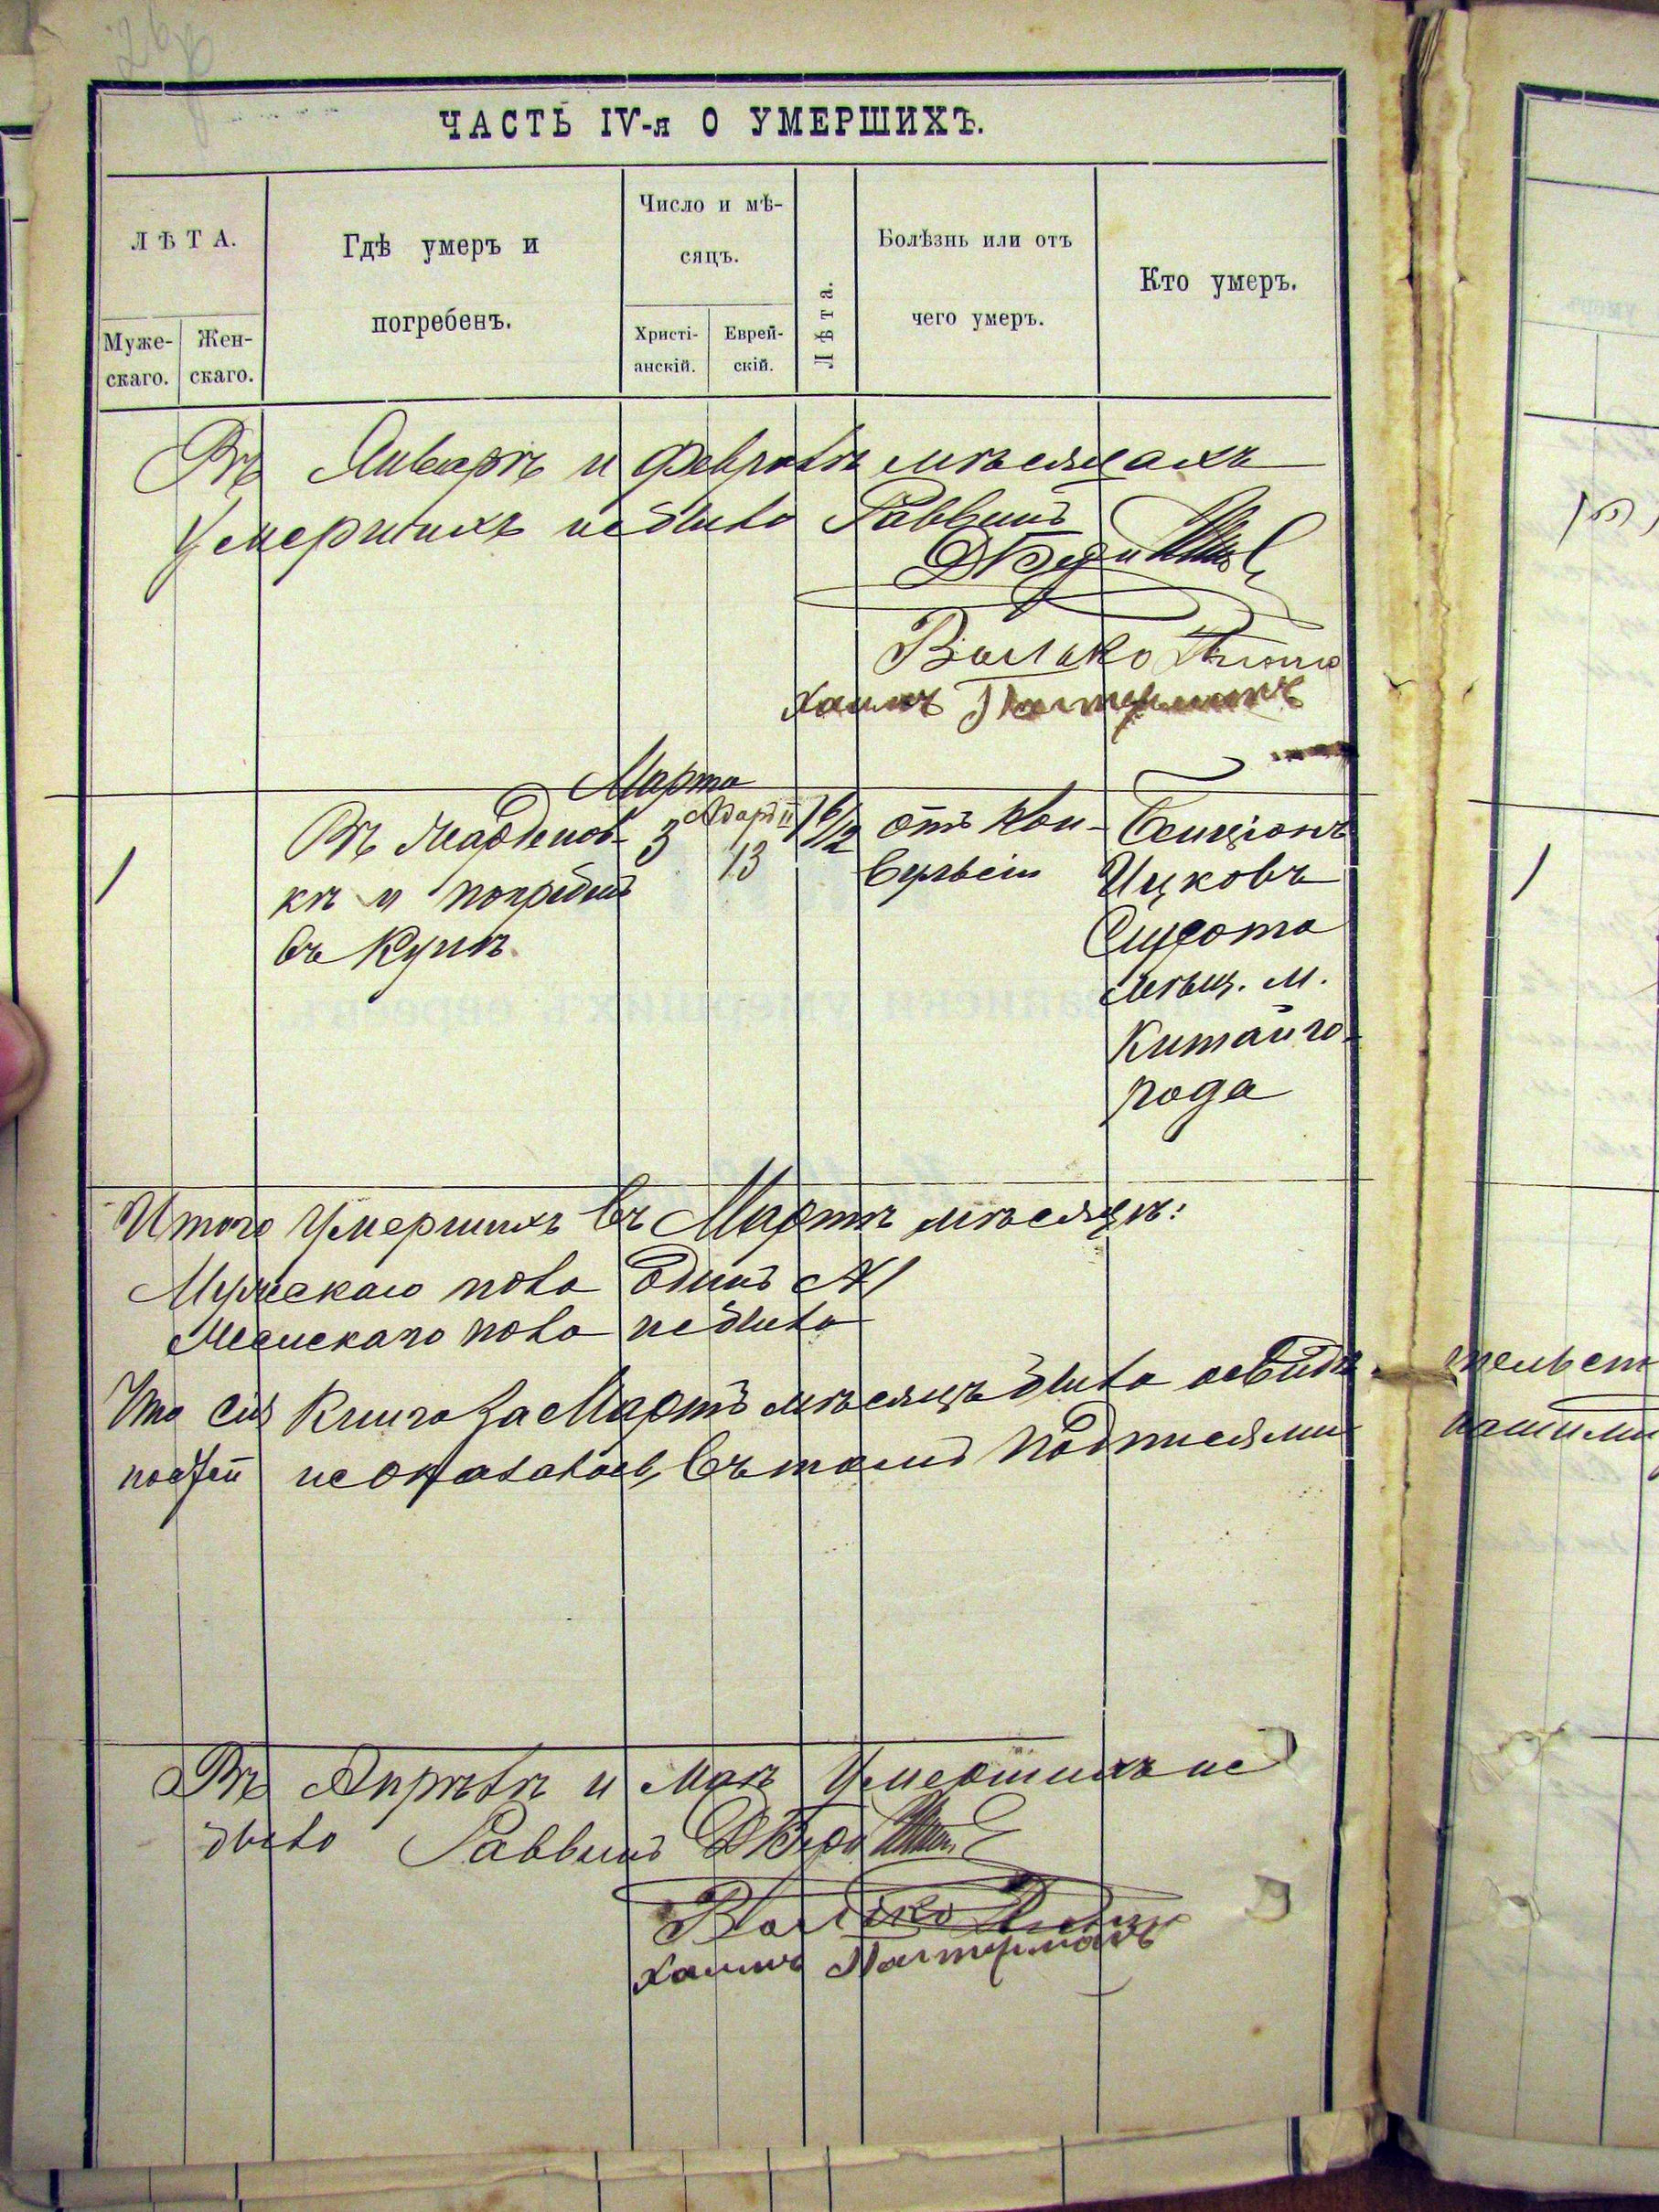 ЧАСТЬ IV-я О УМЕРШИХЪ.
ЛѢТА.
Муже-
скаго.
Жен-
скаго.
Гдѣ умеръ и
погребенъ.
Число и мѣ-
сяцъ.
Христі-
анскій.
Еврей-
скій.
Лѣта.
Болѣзнь или отъ
чего умеръ.
Кто умеръ.
Въ Январѣ и Февралѣ мѣсяцахъ
Умершихъ небыло Раввинъ
Волько
Хаимъ
Марта
1
Въ
кѣ и погребенъ
въ
3
Адаръ II
13
1 6/12
отъ Кон-
вульсіи
Бенціонъ
Ицковъ
Сирота
мѣщ. м.
Китайго-
рода
Итого Умершихъ въ Мартѣ мѣсяцѣ:
Мужскаго пола одинъ №1
Женскаго пола небыло
Что сія Книга за Мартъ мѣсяцъ была освидѣ-
неоказалось, въ томъ подписями
Въ Апрѣлѣ и Маѣ Умершихъ не
было Раввинъ
Волько
Хаимъ
1
тельст
нашими